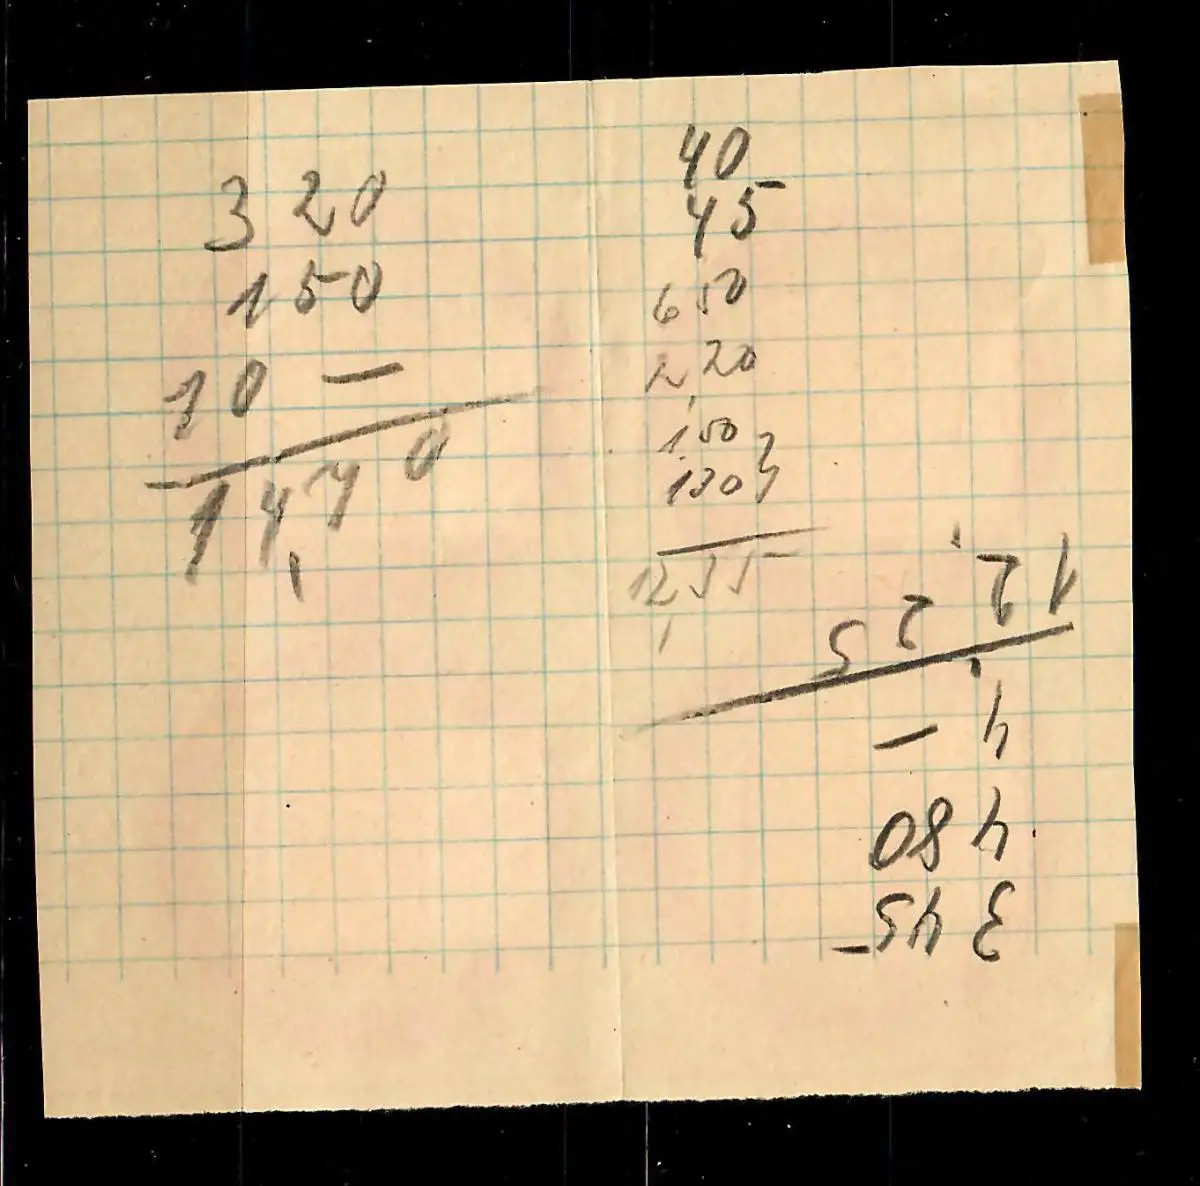 3 20
150
10 —
14,70
40
45
6 50
2,20
1,50
130}
12,35
3 45
4 80
4,—
12,25